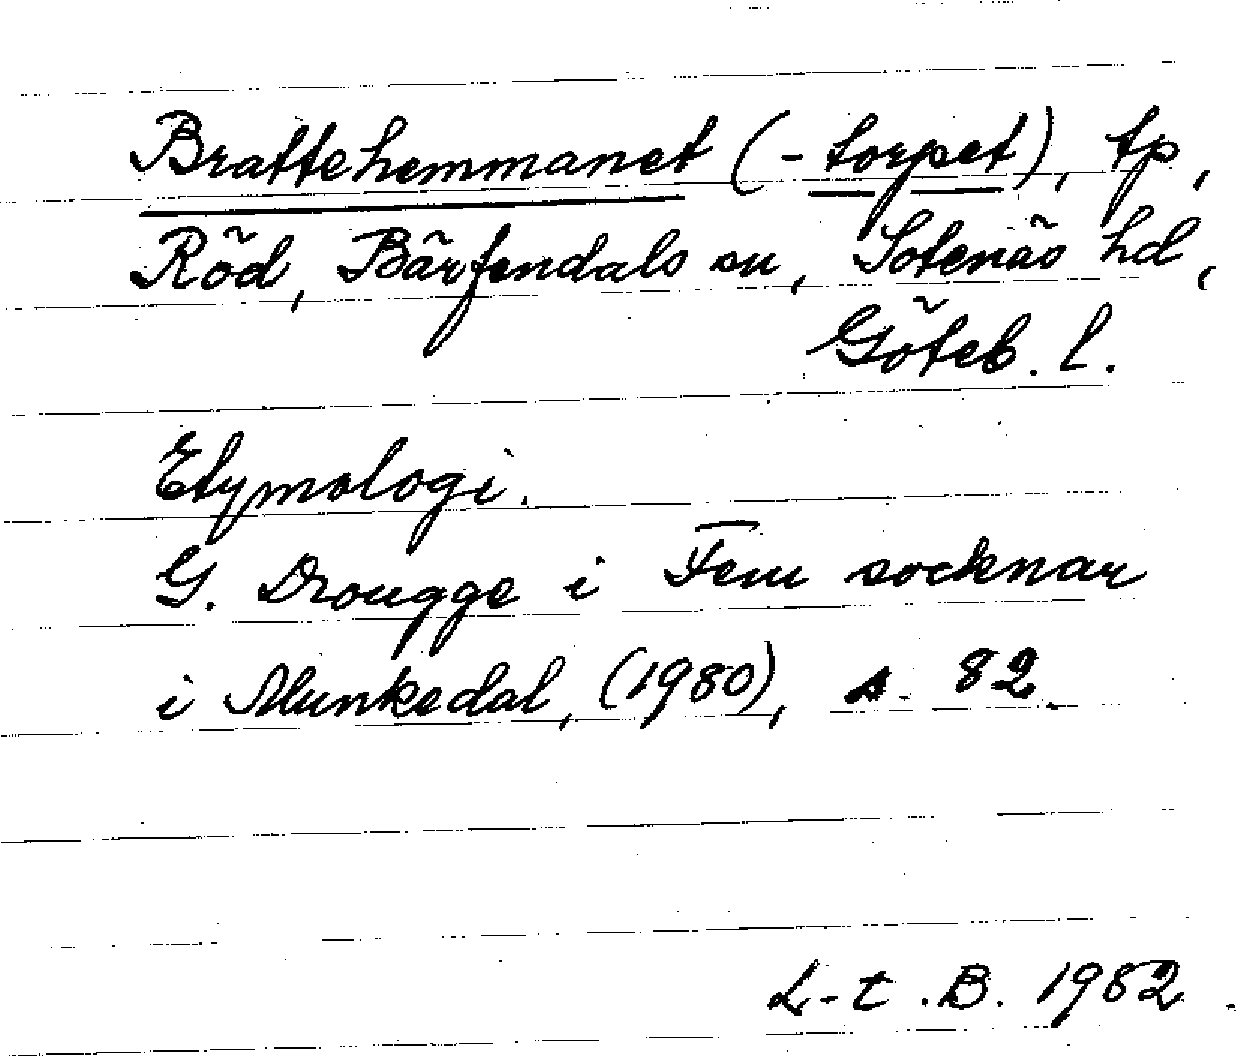 Brattehemmanet (-torpet), tp,
Röd, Bärfendals sn, Sotenäs hd,
Göteb. l.
Etymologi.
G. Drougge i Fem socknar
i Munkedal, (1980), s. 82.
L-t .B. 1982.